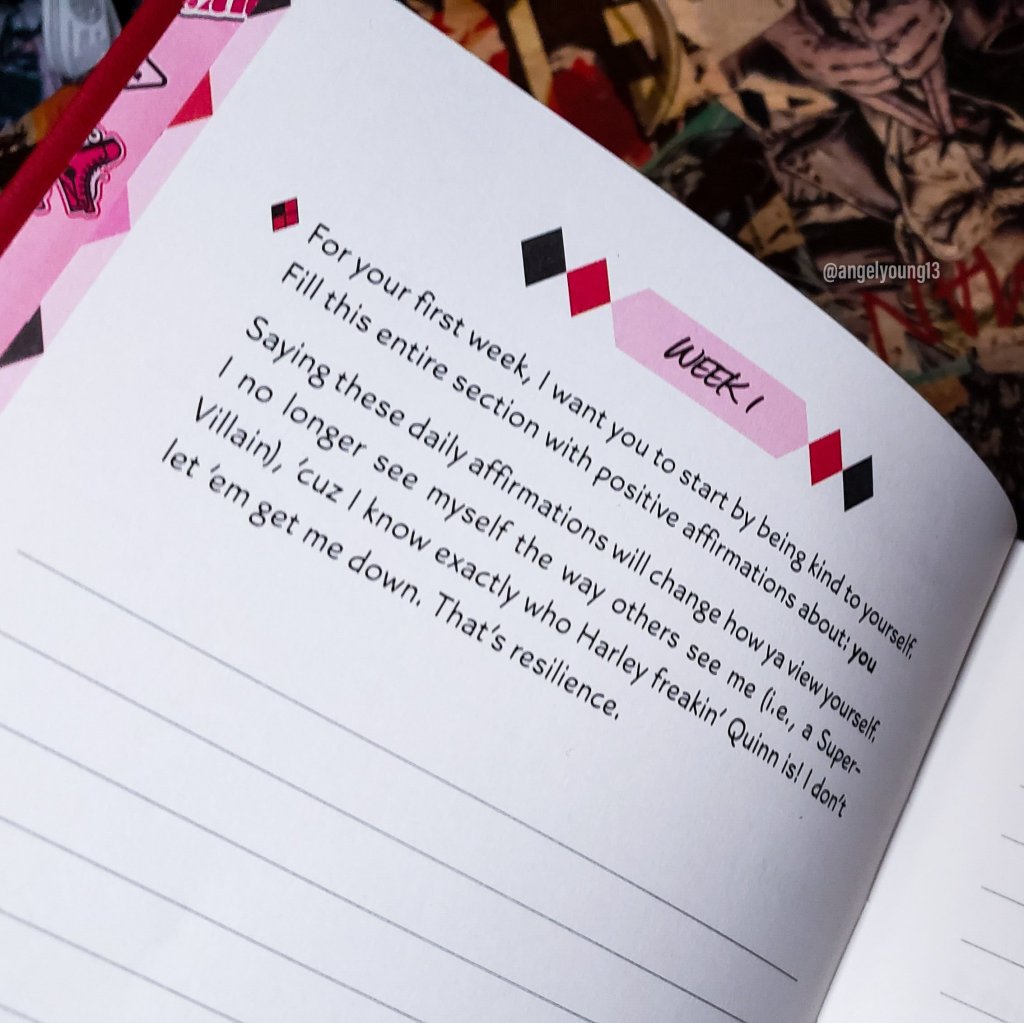 WEEK 1
For your first week, I want you to start by being kind to yourself.
Fill this entire section with positive affirmations about: you
Saying these daily affirmations will change how ya view yourself.
I no longer see myself the way others see me (i.e., a Super-
Villain), 'cuz I know exactly who Harley freakin' Quinn is! I don't
let 'em get me down. That's resilience.
@angelyoung13